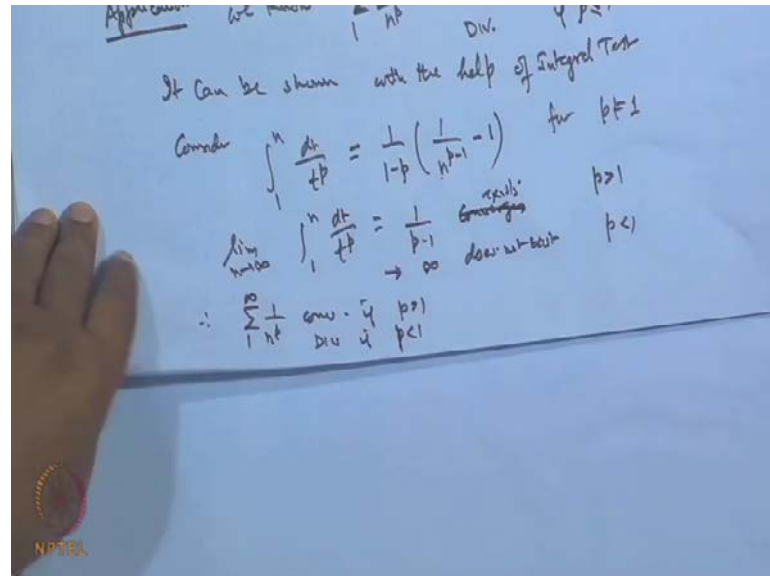 Application we know Σ 1/n^p Div. if p≤1
It can be shown with the help of Integral Test
Consider ∫_1^n dt/t^p = 1/(1-p) (1/n^(p-1) - 1) for p≠1
lim_(n→∞) ∫_1^n dt/t^p = 1/(p-1) exists p>1
→ ∞ does not exist p<1
∴ Σ_1^∞ 1/n^p conv. if p>1
Div if p<1
NPTEL